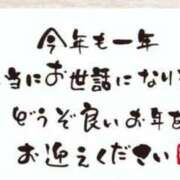 今年も一年
当にお世話になり
どうぞ良いお年を
お迎えください